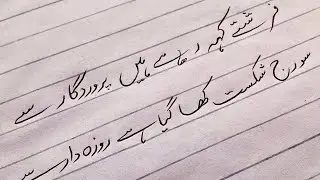 فرشتے کہہ رہے ہیں پروردگار سے
سورج شکست کھا گیا ہے روزہ دار سے